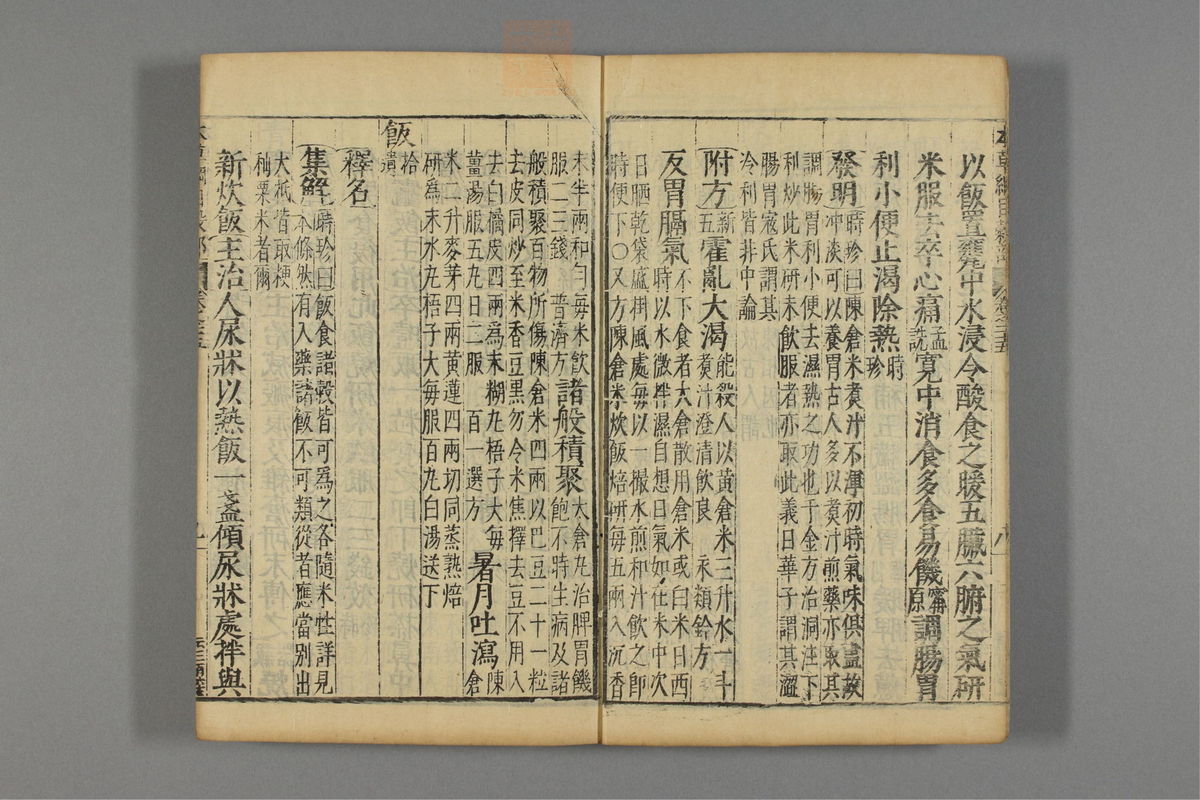 以飯置甕中水浸令酸食之暖五臟六腑之氣研
米服去卒心痛孟詵寛中消食多食易饑甯原調腸胃
利小便止渴除熱時珍
發明時珍曰陳倉米煮汁不渾初時氣味俱盡故
冲淡可以養胃古人多以煮汁煎藥亦取其
調腸胃利小便去濕熱之功也千金方治洞注下
利炒此米研末飲服者亦取此義日華子謂其澀
腸胃寇氏謂其
冷利皆非中論
附方新五霍亂大渴能殺人以黃倉米三升水一斗
煮汁澄清飲良 永類鈐方
反胃膈氣不下食者太倉散用倉米或白米日西
時以水微拌濕自想日氣如在米中次
日晒乾袋盛掛風處毎以一撮水煎和汁飲之即
時便下〇又方陳倉米炊飯焙研毎五兩入沉香
末半兩和勻毎米飲
服二三錢 普濟方諸般積聚太倉丸治脾胃饑
飽不時生病及諸
般積聚百物所傷陳倉米四兩以巴豆二十一粒
去皮同炒至米香豆黑勿令米焦擇去豆不用入
去白橘皮四兩為末糊丸梧子大毎
薑湯服五丸日二服 百一選方暑月吐瀉陳
倉
米二升麥芽四兩黃連四兩切同蒸熟焙
研為末水丸梧子大毎服百丸白湯送下
飯拾遺
釋名
集解時珍曰飯食諸穀皆可為之各隨米性詳見
本條然有入藥諸飯不可類從者應當別出
大抵皆取粳
秈粟米者爾
新炊飯主治人尿牀以熱飯一盞傾尿牀處拌與